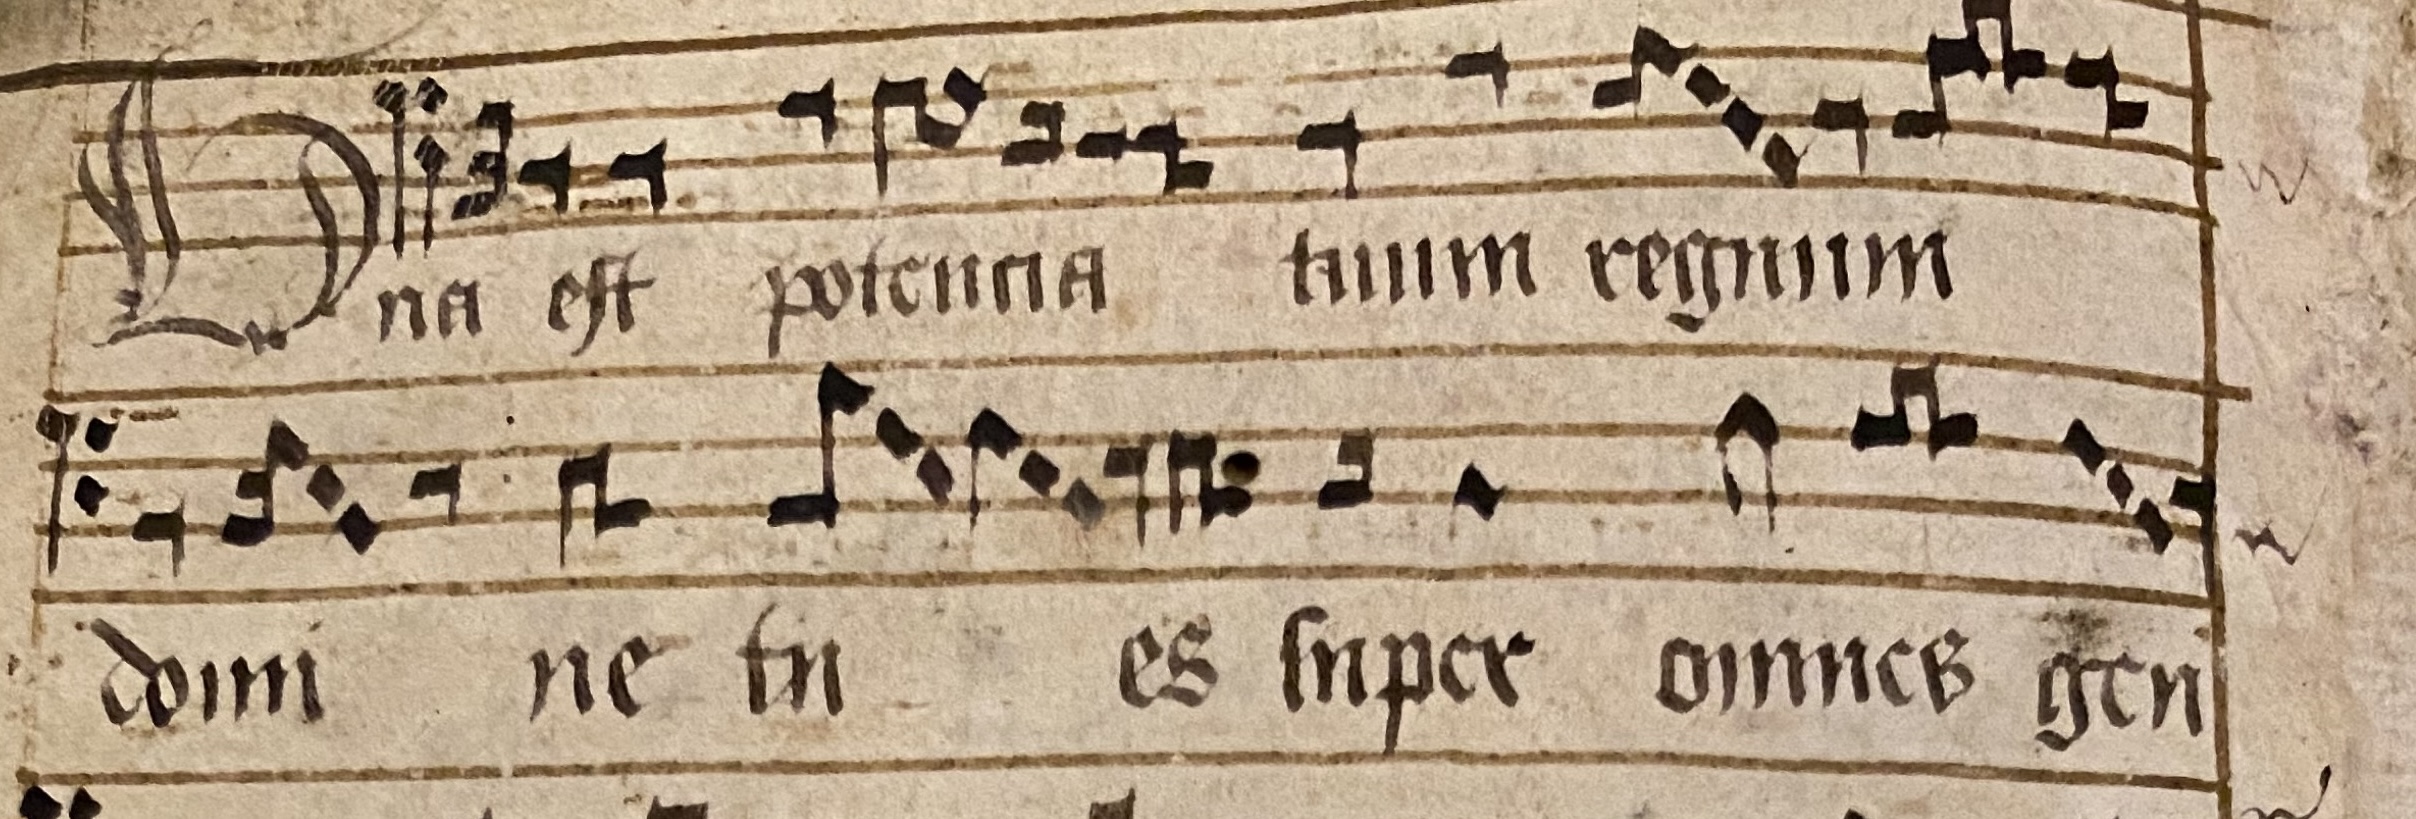 Tua est potencia tuum regnum
domi ne tu es super omnes gen